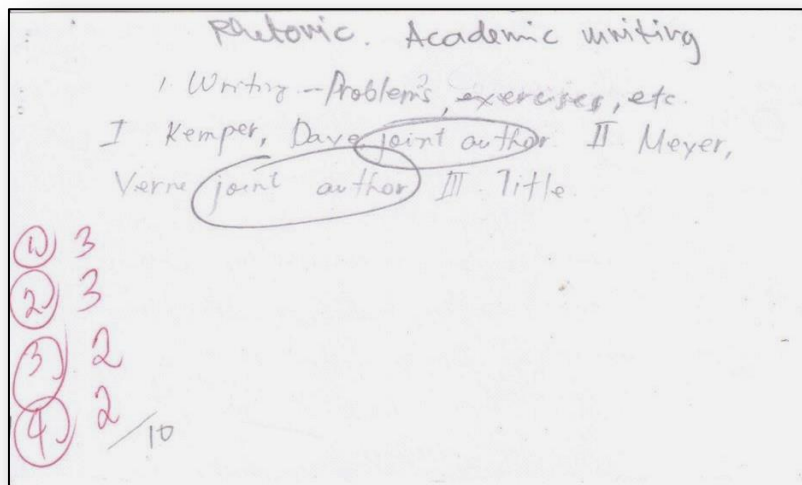 Rhetoric. Academic writing
1. Writing - Problems, exercises, etc.
I Kemper, Dave joint author. II Meyer,
Verne joint author III Title
1 3
2 3
3 2
4 2
/10